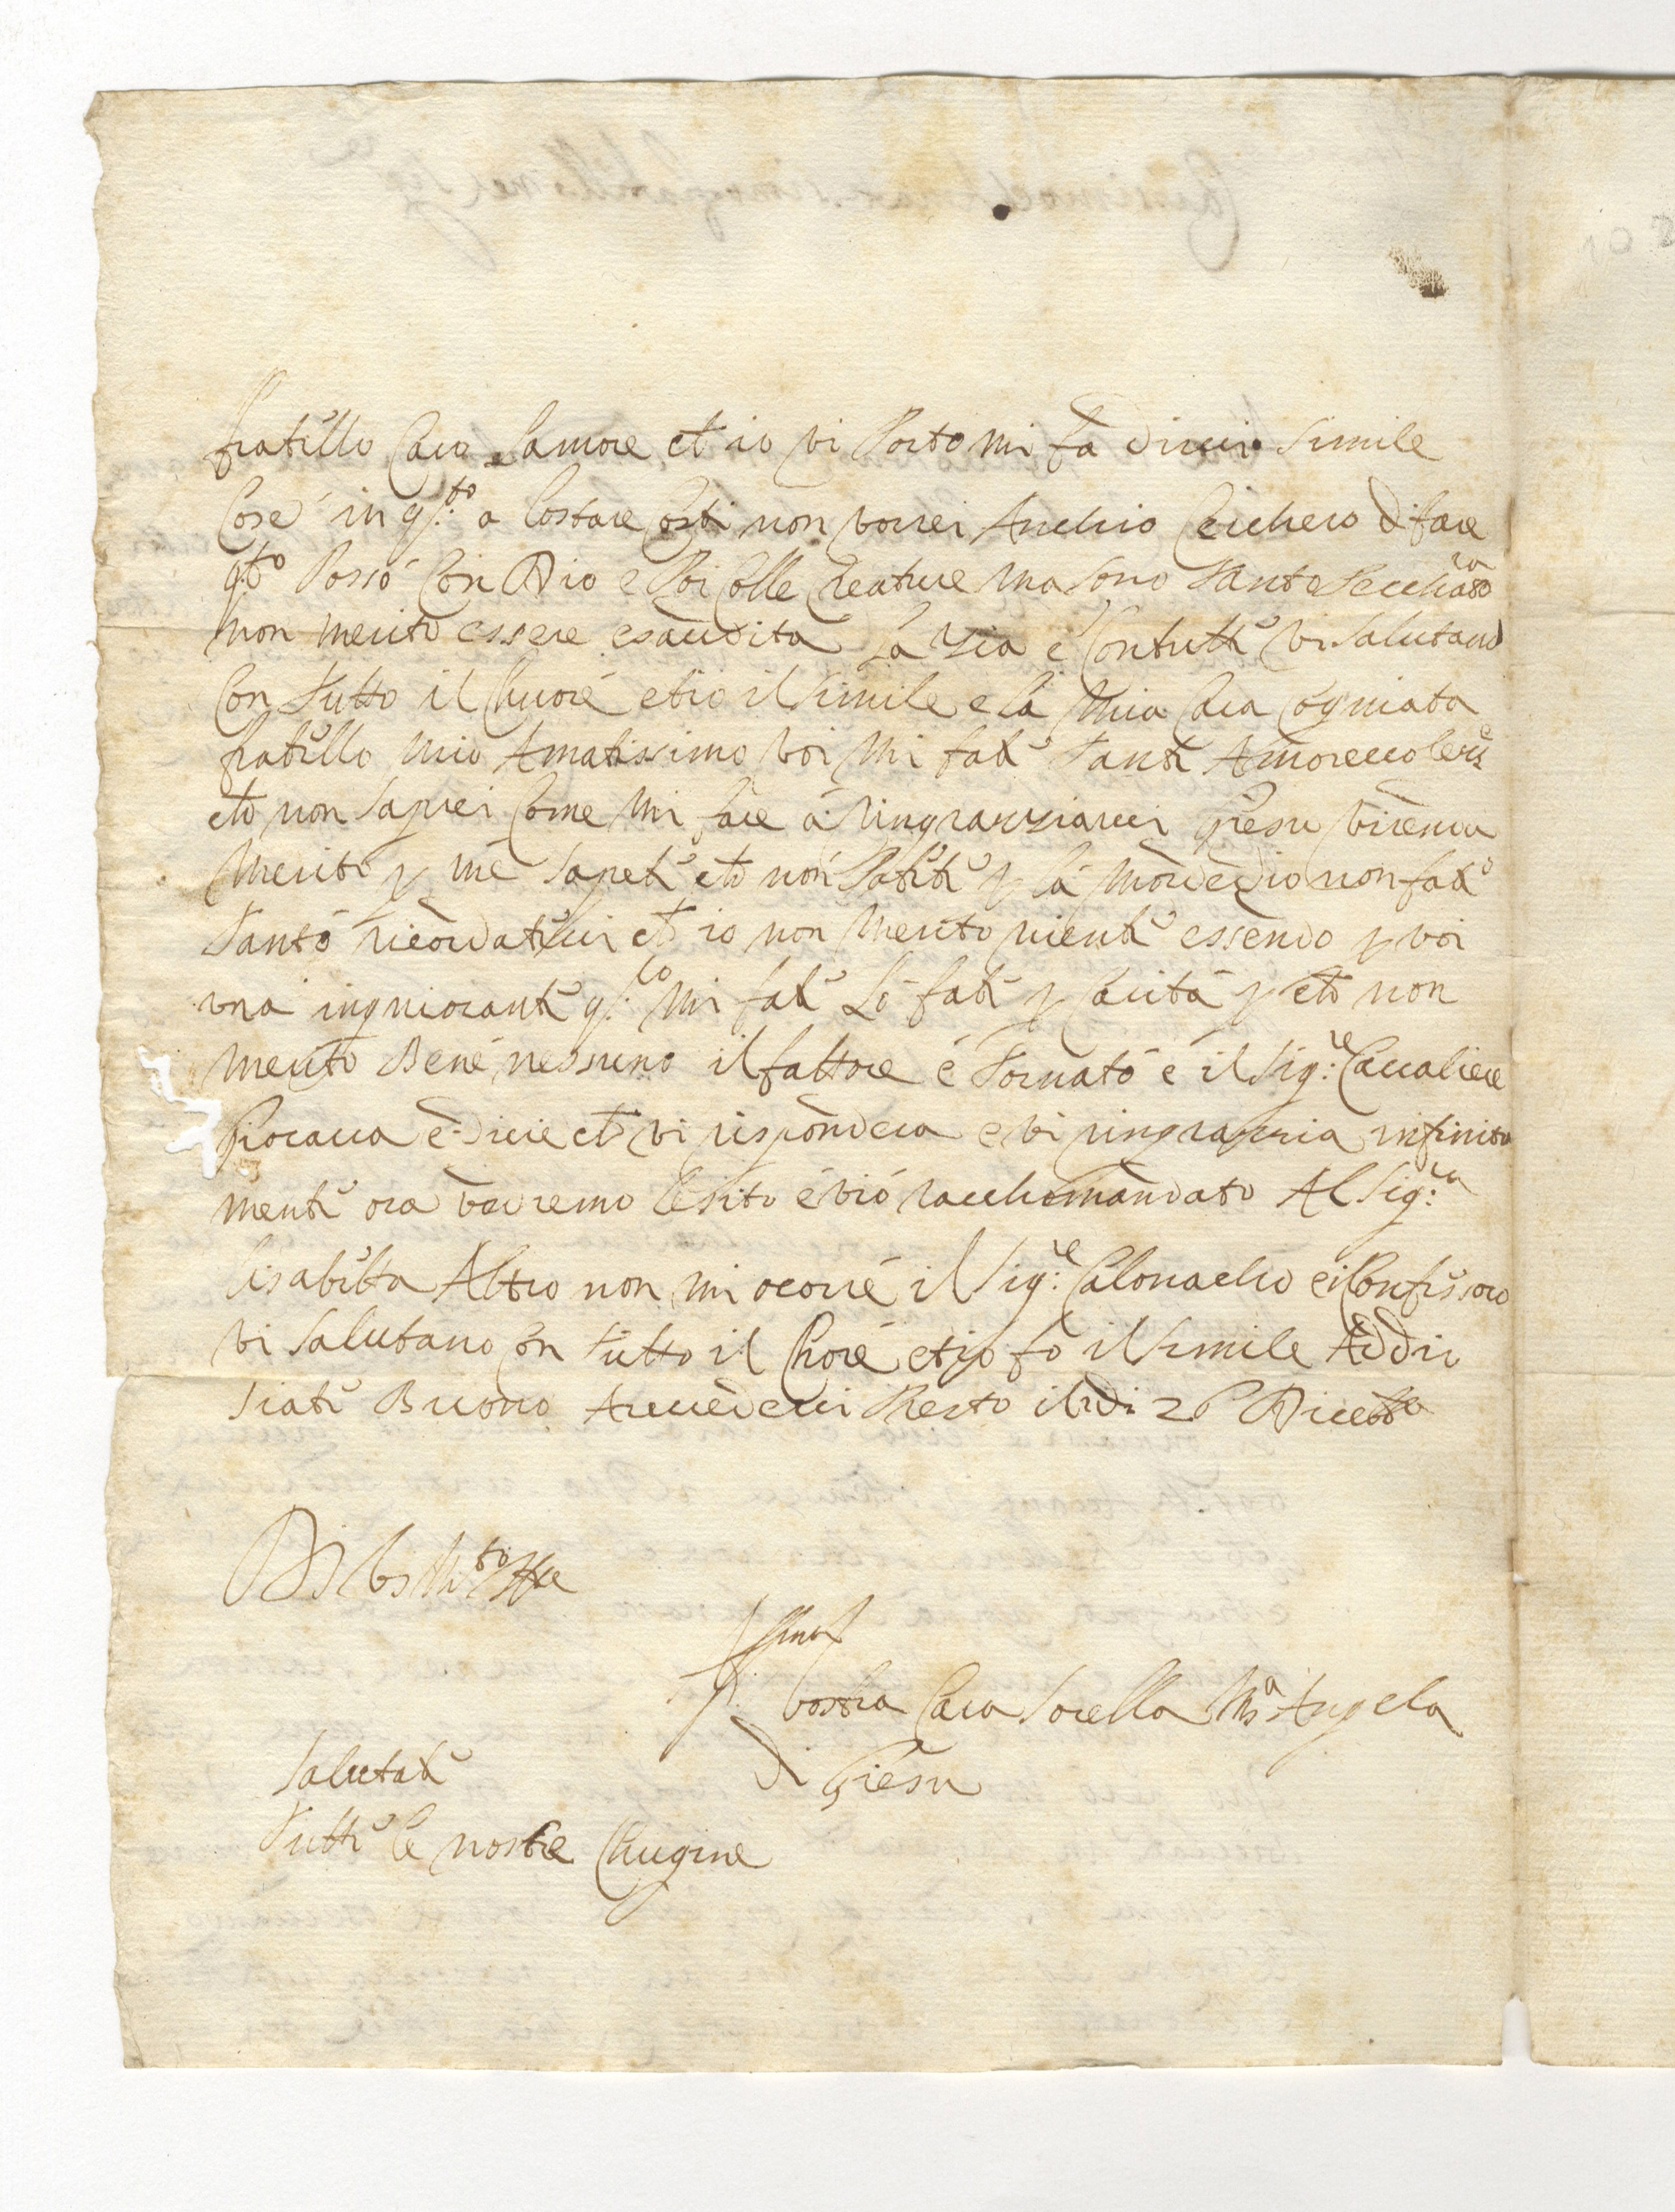 fratello Caro lamore che io vi Porto mi fa dirvi simile
Cose in q.to a Costare Costi non vorrei Anchio Cercher di fare
q.to Posso Con Dio e Poi Colle Creature ma sono Tanto Pecchatora
Non merito essere esaudita La Zia e Con tutte vi Salutano
Con Tutto il Chuore etio il Simile e la Mia Cara Cogniata
fratello mio Amatissimo voi Mi fate Tante Amorevolezze
che non saprei Come Mi fare a Ringraziarvi Giesu vi renda
Merito p me Sapete che non Potete p la mordedio non fate
Tanto ricordatevi che io non Merito niente essendo p voi
una ingniorante q.lo Mi fate Lo fate p Carita p che non
merito Bene nessuno il fattore é Tornato é il Sig:re Cavaliere
é dicie che vi rispondera e vi ringrazia infinita
mente ora vedremo lesito é vió racchomandato Al Sig:ra
Lisabetta Altro non mi ocorre il Sig:re Calonacho e il Confessoro
vi Salutano Con Tutto il Chore etio fo il Simile Addio
Siate Buono Arrivederci Presto il di 26 Dicebre

Vostra Cara Sorella Ma Angela
di Giesu
Salutate
Tutte le nostre Chugine